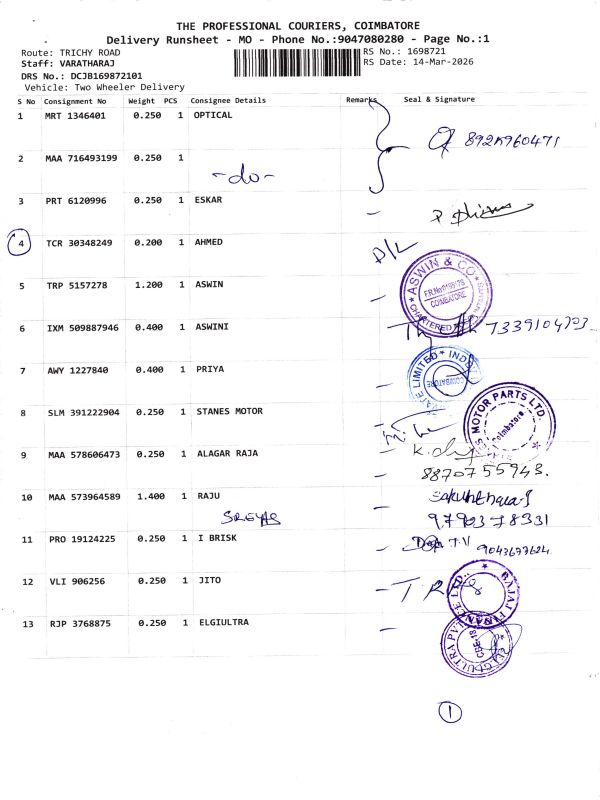 THE PROFESSIONAL COURIERS, COIMBATORE
Delivery Runsheet - MO - Phone No.:9047080280 - Page No.:1
Route: TRICHY ROAD
RS No.: 1698721
Staff: VARATHARAJ
RS Date: 14-Mar-2026
DRS No.: DCJB169872101
Vehicle: Two Wheeler Delivery
S No Consignment No Weight PCS Consignee Details Remarks Seal & Signature
1 MRT 1346401 0.250 1 OPTICAL
8925960471
2 MAA 716493199 0.250 1
-do-
3 PRT 6120996 0.250 1 ESKAR
4 TCR 30348249 0.200 1 AHMED D/L
5 TRP 5157278 1.200 1 ASWIN
ASWIN & CO
CHARTERED
COIMBATORE
6 IXM 509887946 0.400 1 ASWINI
7339104723
7 AWY 1227840 0.400 1 PRIYA
LIMITED * INDO
COIMBATORE
8 SLM 391222904 0.250 1 STANES MOTOR
MOTOR PARTS LTD.
Coimbatore
9 MAA 578606473 0.250 1 ALAGAR RAJA
8870755943.
10 MAA 573964589 1.400 1 RAJU
SREYAS
9790378331
11 PRO 19124225 0.250 1 I BRISK
T.V
9043677624
12 VLI 906256 0.250 1 JITO
BAJAJ FINANCE LTD.
13 RJP 3768875 0.250 1 ELGIULTRA
ELGIULTRA PVT
CBE-18
1